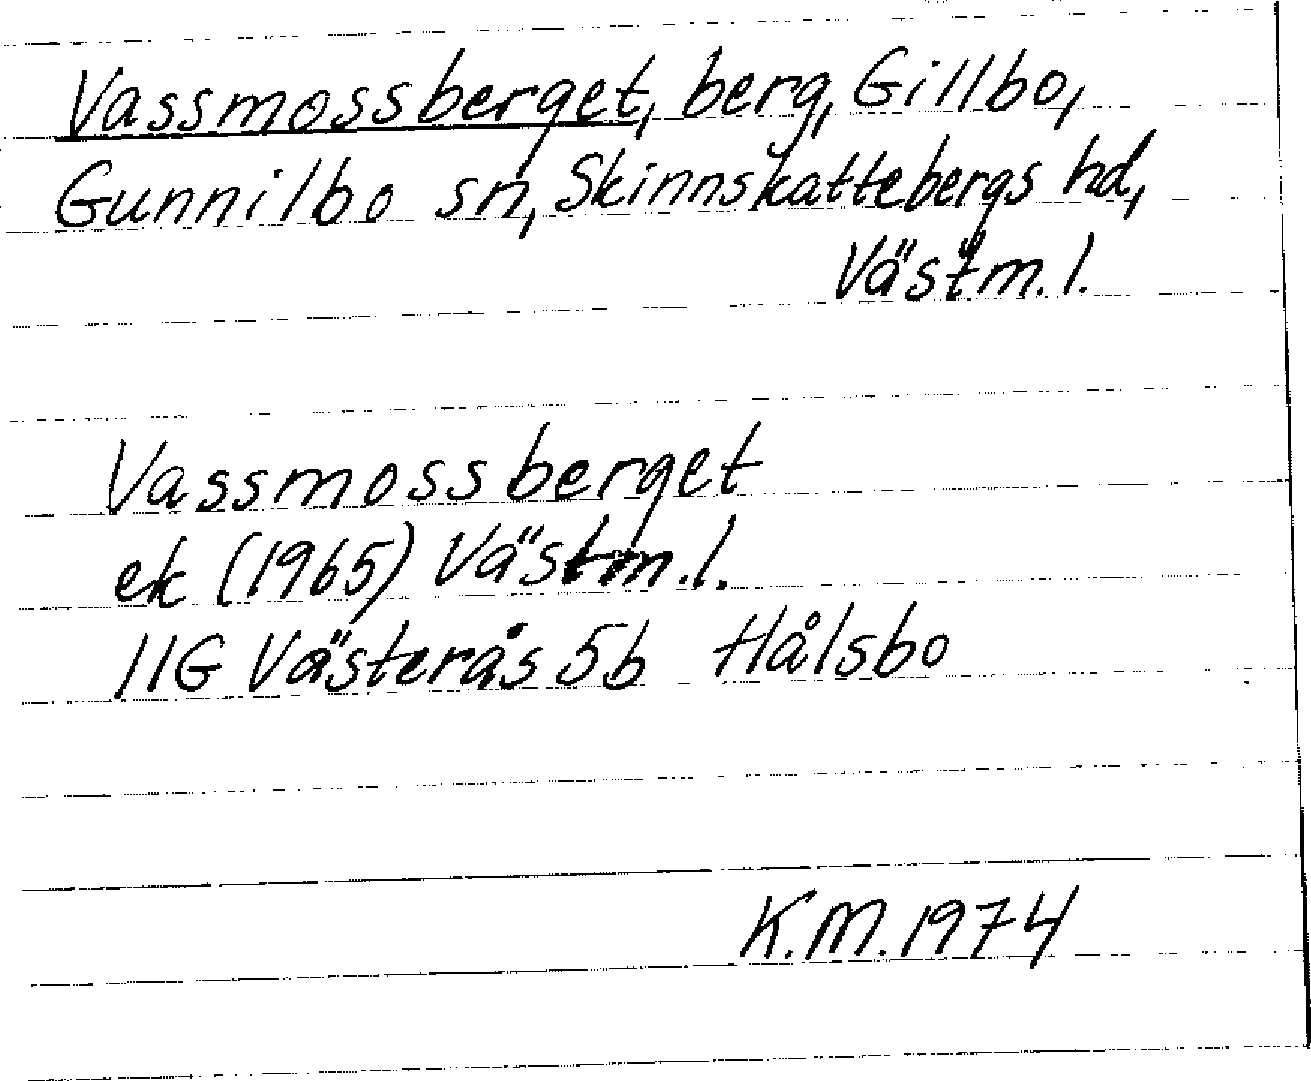 Vassmossberget, berg, Gillbo,
Gunnilbo sn, Skinnskattebergs hd,
Västm. l.
Vassmossberget
ek (1965) Västm. l.
11G Västerås 5b Hålsbo
K.M. 1974